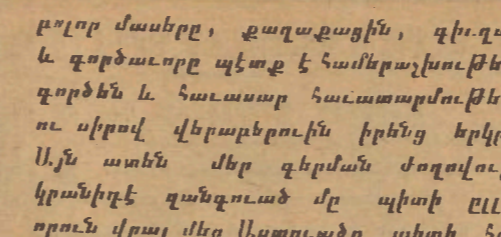 բոլոր մասերը, քաղաքացին, գիւղա
և գործաւորը պէտք է համերաշխութե
գործեն և հաւասար հաւատարմութե
ու սիրով վերաբերուին իրենց երկր
Այն ատեն մեր գերման ժողովուր
կրանիդէ զանգուած մը պիտի ըլլ
որուն վրայ մեծ Աստուածը պիտի